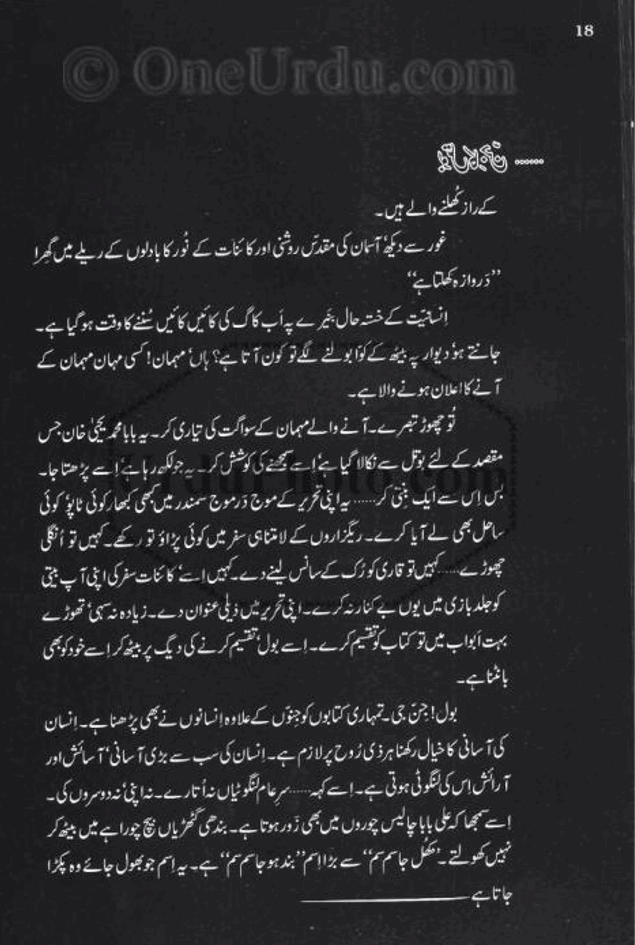 18
© OneUrdu.com
کے راز کُھلنے والے ہیں۔
غور سے دیکھ' آسمان کی مقدّس روشنی اور کائنات کے نُور کا بادلوں کے ریلے میں گھِرا
''دَروازہ کھلتا ہے''
اِنسانیّت کے خستہ حال بَنیرے پہ اَب کاگ کی کائیں کائیں سُننے کا وقت ہو گیا ہے۔
جانتے ہو' دیوار پہ بیٹھ کے کوّا بولنے لگے تو کون آتا ہے؟ ہاں' مہمان! کسی مہان مہمان کے
آنے کا اعلان ہونے والا ہے۔
تُو چھوڑ تبصرے۔ آنے والے مہمان کے سواگت کی تیاری کر۔ یہ بابا محمد یحییٰ خان جس
مقصد کے لئے بوتل سے نکالا گیا ہے' اِسے سمجھنے کی کوشش کر۔ یہ جو لکھ رہا ہے' اِسے پڑھتا جا۔
بس اِس سے ایک بِنتی کر...... یہ اپنی تحریر کے موج دَر موج سمندر میں بھی کبھار کوئی ٹاپُو' کوئی
ساحل بھی لے آیا کرے۔ ریگزاروں کے لامتناہی سفر میں کوئی پڑاؤ تو رکھے۔ کہیں تو اُنگلی
چھوڑے...... کہیں تو قاری کو رُک کے سانس لینے دے۔ کہیں اِسے' کائنات سفر کی اپنی آپ بیتی
کو جلد بازی میں یوں بے کنار نہ کرے۔ اپنی تحریر میں ذیلی عنوان دے۔ زیادہ نہ سہی' تھوڑے
بہت اَبواب میں تو کتاب کو تقسیم کرے۔ اِسے بول' تقسیم کرنے کی دیگ پر بیٹھ کر اِسے خود کو بھی
بانٹنا ہے۔
بول! جِنّ جی۔ تمہاری کتابوں کو جنّوں کے علاوہ اِنسانوں نے بھی پڑھنا ہے۔ اِنسان
کی آسانی کا خیال رکھنا ہر ذی رُوح پر لازم ہے۔ اِنسان کی سَب سے بڑی آسانی' آسائش اور
آرائش اِس کی لنگوٹی ہوتی ہے۔ اِسے کہہ...... سرِعام لنگوٹیاں نہ اُتارے۔ نہ اپنی' نہ دوسروں کی۔
اِسے سمجھا کہ علی بابا چالیس چوروں میں بھی زَور ہوتا ہے۔ بندھی گٹھڑیاں بیچ چوراہے میں بیٹھ کر
نہیں کھولتے۔ ''کُھل جا سم سم'' سے بڑا اِسم ''بند ہو جا سم سم'' ہے۔ یہ اِسم جو بھول جائے وہ پکڑا
جاتا ہے